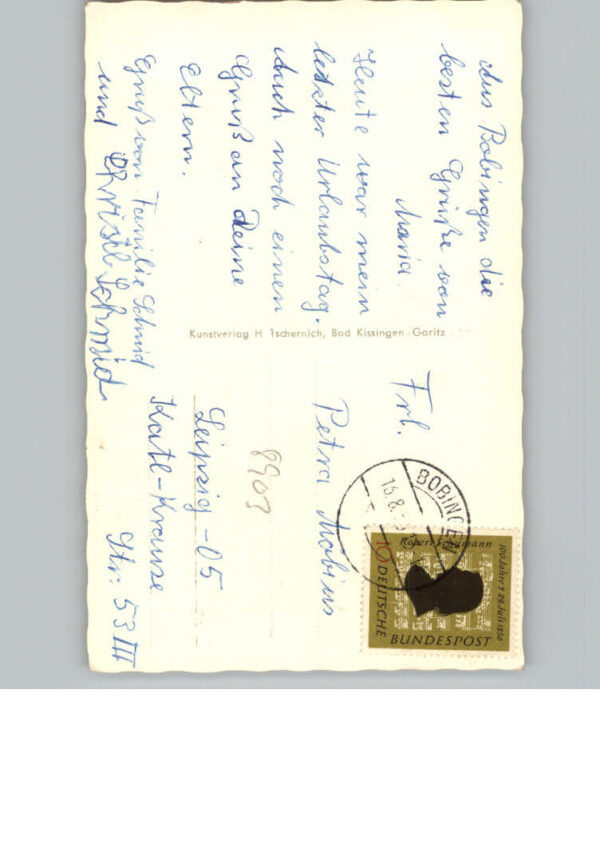 Aus Bobingen die
besten Grüße von
Maria.
Heute war mein
letzter Urlaubstag.
Auch noch einen
Gruß an Deine
Eltern.
Gruß von Familie Schmid
und Christl Schmid
Kunstverlag H Tschernich, Bad Kissingen-Garitz
Frl.
Petra Mobius
8903
Leipzig-05
Kätl-Krause
Str. 53 III
BOBINGEN
15.8.
Robert Schumann
100 Jahre † 29. Juli 1956
10
DEUTSCHE
BUNDESPOST